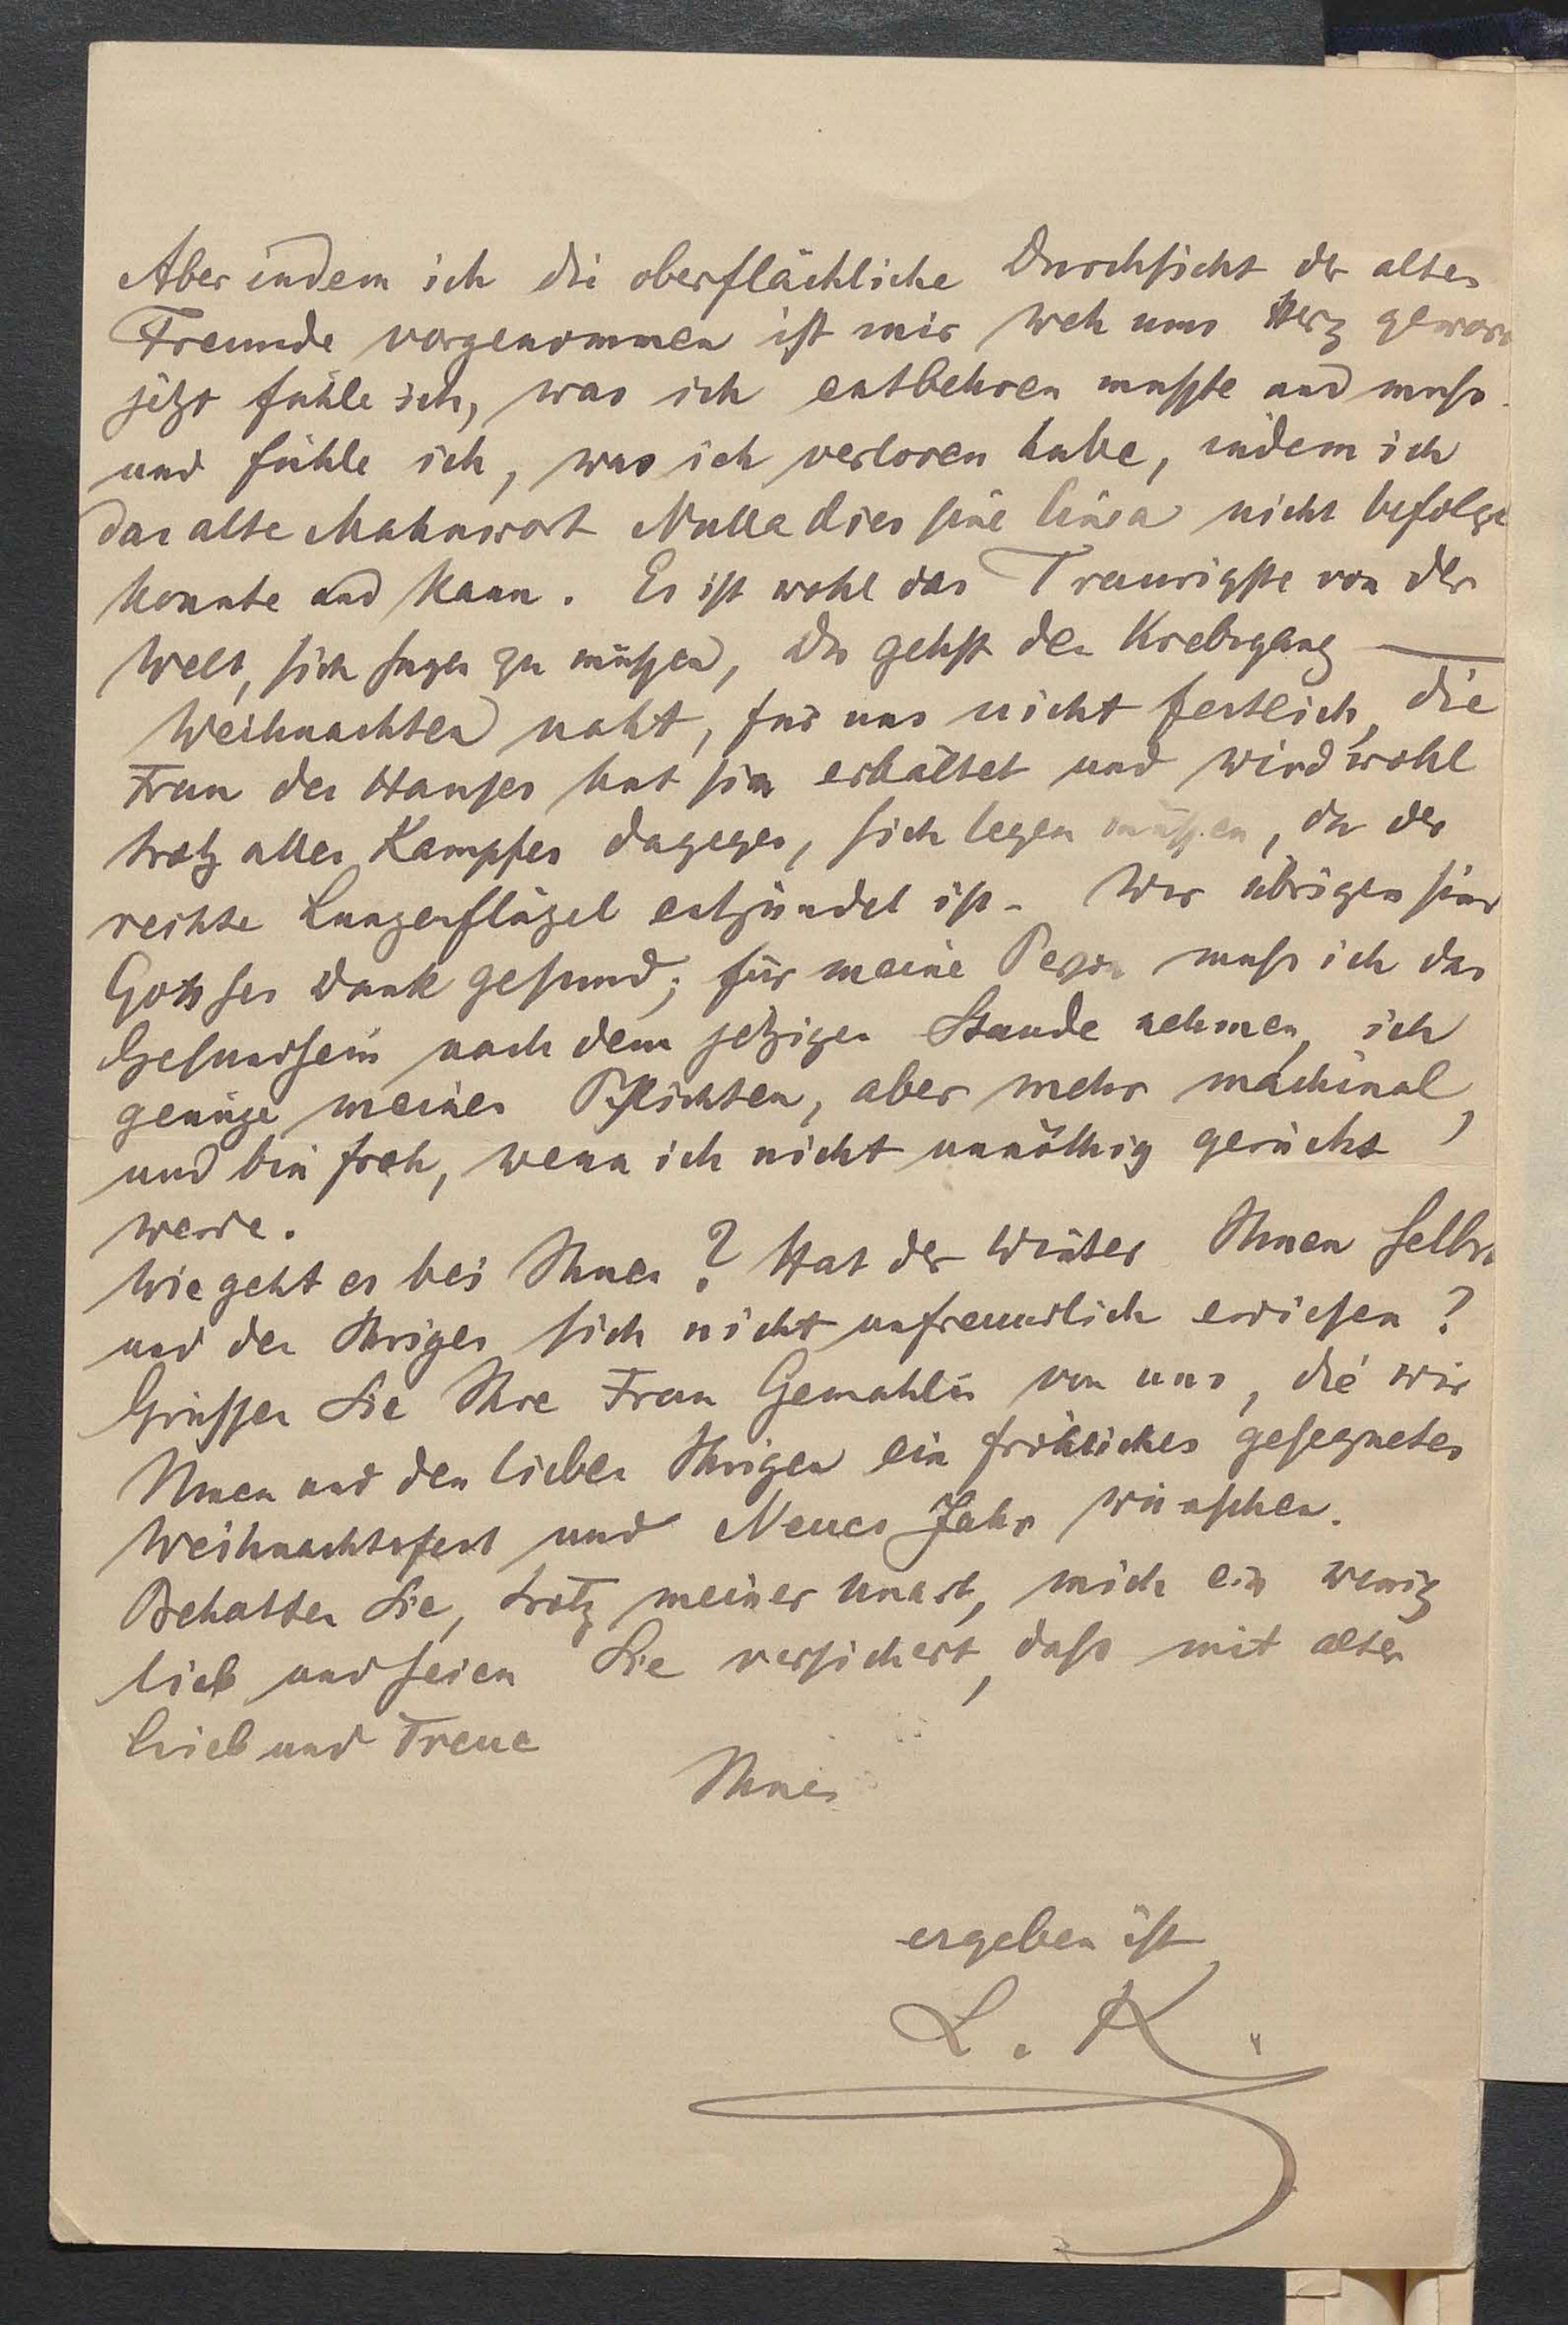 Aber indem ich die oberflächliche Durchsicht der alten
Freunde vorgenommen ist mir weh ums Herz gewor
jetzt fühle ich, was ich entbehren musste und muss
und fühle ich, was ich verloren habe, indem ich
das alte Mahnwort Nulla dies sine linea nicht befolge
konnte und kann. Es ist wohl das Traurigste von der
Welt, sich sagen zu müssen, Du gehst den Krebsgang —
Weihnachten naht, für uns nicht festlich, die
Frau des Hauses hat sich erkältet und wird wohl
trotz alles Kampfes dagegen, sich legen müssen, da der
rechte Lungenflügel entzündet ist. Wir übrigen sind
Gott sei Dank gesund; für meine Person muss ich das
Gesundsein nach dem jetzigen Stande nehmen, ich
genüge meinen Pflichten, aber mehr machinal,
und bin froh, wenn ich nicht unnöthig gerückt
werde.
Wie geht es bei Ihnen? Hat der Winter Ihnen selbst
und den Ihrigen sich nicht unfreundlich erwiesen?
Grüssen Sie Ihre Frau Gemahlin von uns, die wir
Ihnen und den lieben Ihrigen ein fröhliches gesegnetes
Weihnachtsfest und Neues Jahr wünschen.
Behalten Sie, trotz meiner Unart, mich ein wenig
lieb und seien Sie versichert, dass mit alter
Lieb und Treue
Ihnen
ergeben ist
L. K.